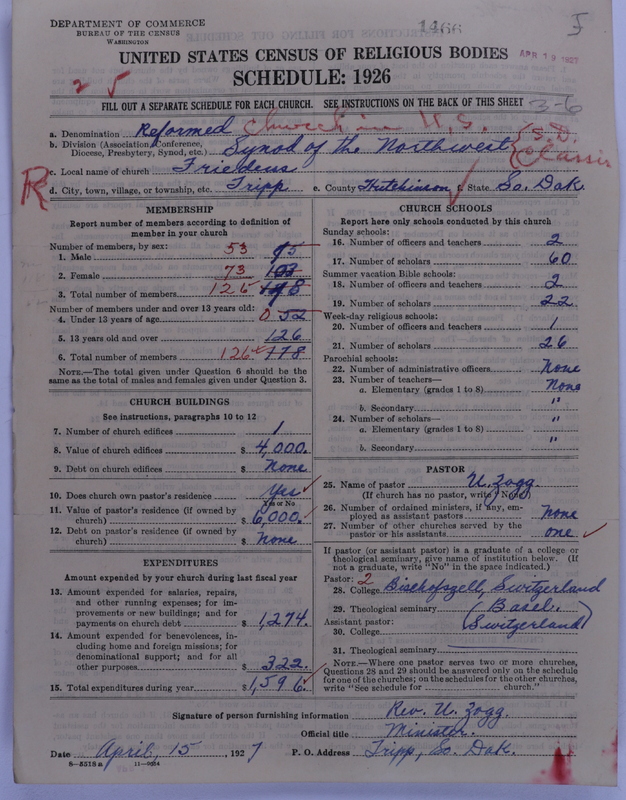 DEPARTMENT OF COMMERCE
BUREAU OF THE CENSUS
WASHINGTON
1466
APR 19 1927
UNITED STATES CENSUS OF RELIGIOUS BODIES
SCHEDULE: 1926
FILL OUT A SEPARATE SCHEDULE FOR EACH CHURCH. SEE INSTRUCTIONS ON THE BACK OF THIS SHEET
3-6
a. Denomination Reformed Church in U.S.
b. Division (Association, Conference, Diocese, Presbytery, Synod, etc.) Synod of the Northwest (S.D. Classis
c. Local name of church Friedens
d. City, town, village, or township, etc. Tripp e. County Hutchinson f. State So. Dak.
R
MEMBERSHIP
Report number of members according to definition of
member in your church
Number of members, by sex:
1. Male 53
2. Female 73 103
3. Total number of members 126 178
Number of members under and over 13 years old:
4. Under 13 years of age 0 52
5. 13 years old and over 126
6. Total number of members 126 178
NOTE.—The total given under Question 6 should be the
same as the total of males and females given under Question 3.
CHURCH BUILDINGS
See instructions, paragraphs 10 to 12
7. Number of church edifices 1
8. Value of church edifices $ 4,000.
9. Debt on church edifices $ None
10. Does church own pastor's residence Yes
Yes or No
11. Value of pastor's residence (if owned by
church) $ 6,000.
12. Debt on pastor's residence (if owned by
church) $ None
EXPENDITURES
Amount expended by your church during last fiscal year
13. Amount expended for salaries, repairs,
and other running expenses; for im-
provements or new buildings; and for
payments on church debt $ 1,274.
14. Amount expended for benevolences, in-
cluding home and foreign missions; for
denominational support; and for all
other purposes $ 322.
15. Total expenditures during year $ 1,596.
CHURCH SCHOOLS
Report here only schools conducted by this church
Sunday schools:
16. Number of officers and teachers 2
17. Number of scholars 60
Summer vacation Bible schools:
18. Number of officers and teachers 2
19. Number of scholars 22
Week-day religious schools:
20. Number of officers and teachers 1
21. Number of scholars 26
Parochial schools:
22. Number of administrative officers None
23. Number of teachers—
a. Elementary (grades 1 to 8) None
b. Secondary "
24. Number of scholars—
a. Elementary (grades 1 to 8) "
b. Secondary "
PASTOR
25. Name of pastor U. Zogg
(If church has no pastor, write "No")
26. Number of ordained ministers, if any, em-
ployed as assistant pastors None
27. Number of other churches served by the
pastor or his assistants one
If pastor (or assistant pastor) is a graduate of a college or
theological seminary, give name of institution below. (If
not a graduate, write "No" in the space indicated.)
Pastor: 2
28. College Bischofszell, Switzerland
29. Theological seminary (Basel.
Assistant pastor: Switzerland)
30. College
31. Theological seminary
NOTE.—Where one pastor serves two or more churches,
Questions 28 and 29 should be answered only on the schedule
for one of the churches; on the schedules for the other churches,
write "See schedule for church."
Signature of person furnishing information Rev. U. Zogg.
Official title Minister.
Date April, 15, 1927 P. O. Address Tripp, So. Dak.
8-5518a 11-9864